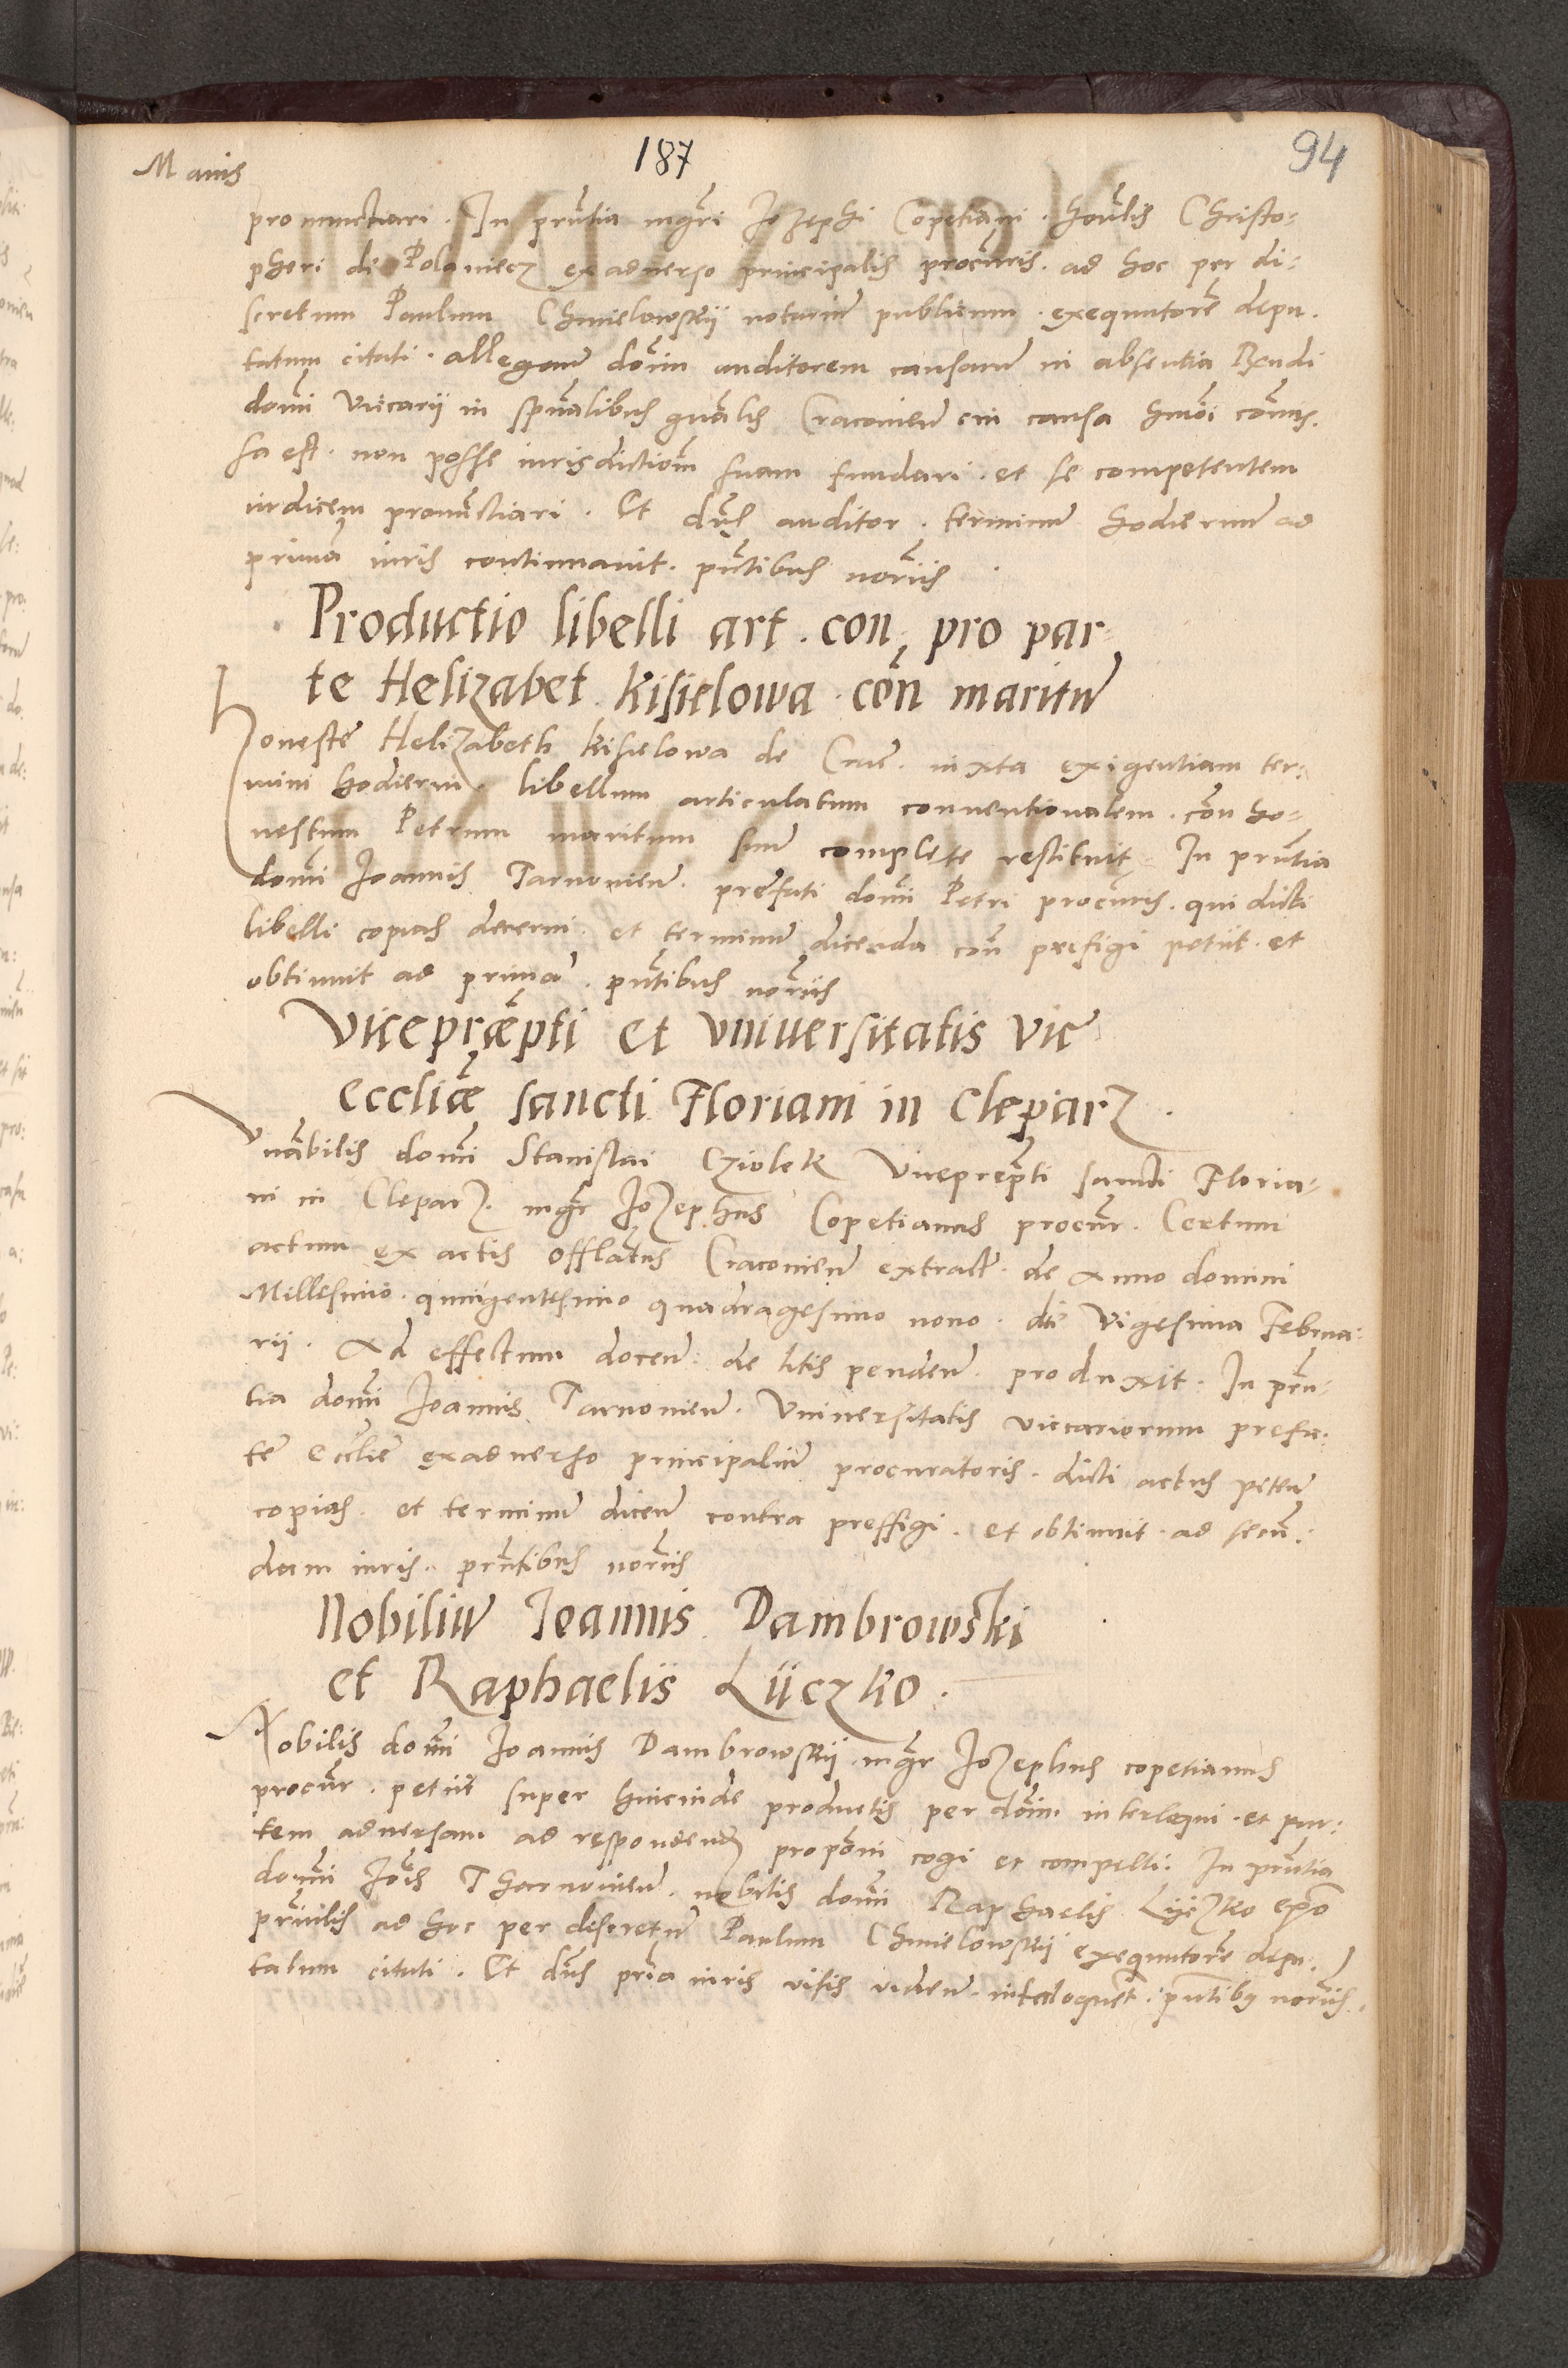 187
94
Manis
pronunctiari. In prntia mgri Jozephi Copetiani. Honlis Christo-
pheri de Polaniecz ex adverso principalis procuris. ad hoc per di-
scretum Paulum Chmielowskij notariu publicum. exequutore depu-
tatum citati. allegan domin auditorem causarum in absentia Rxndi
domi vicarii in spualibus gnalis Cracovien cui causa hmoi comis-
sa est. non posse iurisdictiom suam fundari. et se competentem
iudicem pronuctiari. Et dns auditor. terminu hodiernu ad
prima iuris continuavit. pntibus noriis
Productio libelli art. con. pro par-
te Helizabet Kisielowa con maritu
Honeste Helizabeth Kisielowa de Crac. iuxta exigentiam ter-
mini hodierni. libellum articulatum conventionalem. con ho-
nestum Petrum maritum suu complete restituit. In prntia
domi Joannis Tarnovien. prefati domi Petri procuris. qui dicti
libelli copias decerni. et terminu dicenda con prefigi petiit. et
obtinuit ad prima. pntibus noriis
Vicepræpti et universitatis vic
eccliæ sancti Floriani in Cleparz.
Vnabilis domi Stanislai Cziolek Viceprepti sancti Floria-
ni in Cleparz. mgr Jozephus Copetianus procur. Certum
actum ex actis Offlatus Cracovien extract. de Anno domini
Millesimo. quingentesimo quadragesimo nono. die Vigesima Februa-
rij. Ad effectum docen: de litis penden. produxit. In prn-
tia domi Joannis Tarnovien. Universitatis vicariorum prefa-
te Ecclie exadverso principaliu procuratoris. dicti actus peten
copias. et terminu dicen contra preffigi. et obtinuit. ad secu-
dam iuris. prntibus noriis
Nobiliu Joannis Dambrowski
et Raphaelis Liiczko.
Nobilis domi Joannis Dambrowskij. mgr Jozephus copetianus
procur. petiit super hincinde productis per domin interlequi. et par-
tem adversam ad respondend proponi cogi et compelli. In prntia
domi Jois Tharnovien. nobilis domi Raphaelis Lyczko expo
prinilis ad hoc per discretu Paulum Chmielowskij exequutore depu-
tatum citati. Et dns pria iuris visis viden. interloquet. pntibq noriis.